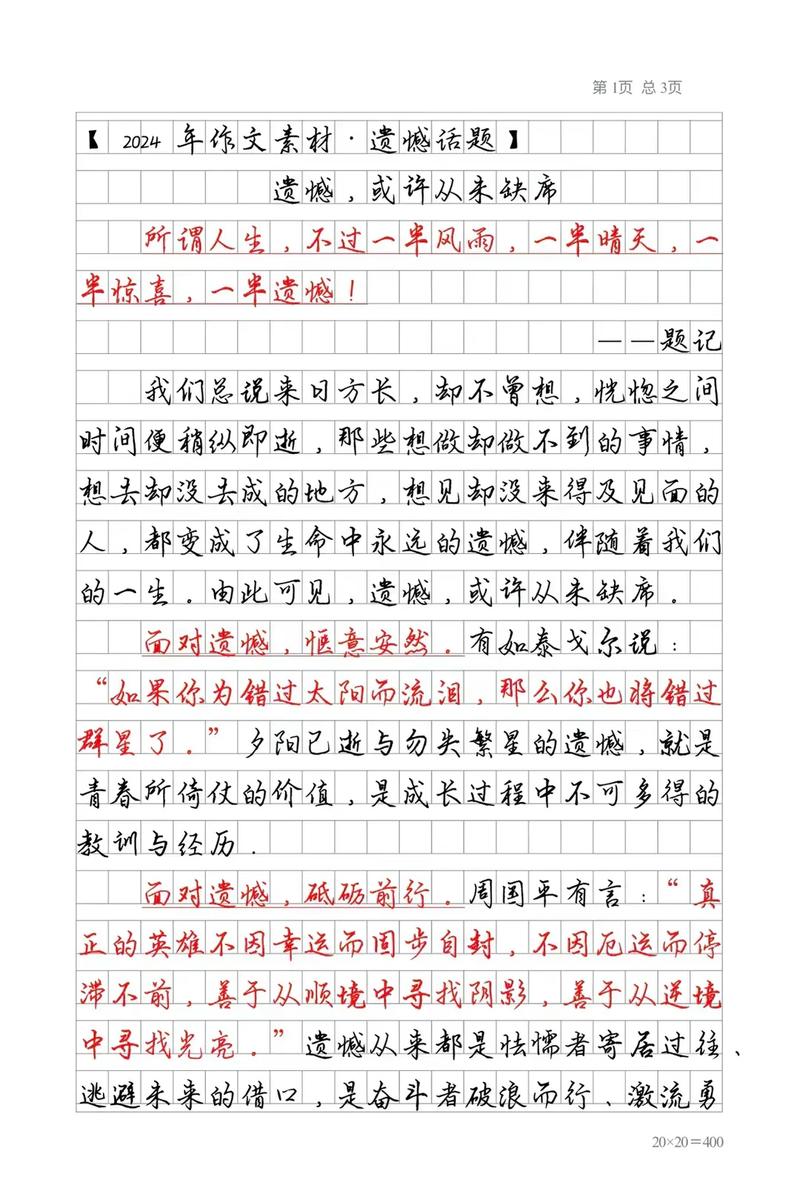 第1页 总3页
【 2024 年作文素材·遗憾话题】
遗憾，或许从未缺席
所谓人生，不过一半风雨，一半晴天，一
半惊喜，一半遗憾！
——题记
我们总说来日方长，却不曾想，恍惚之间
时间便稍纵即逝，那些想做却做不到的事情，
想去却没去成的地方，想见却没来得及见面的
人，都变成了生命中永远的遗憾，伴随着我们
的一生。由此可见，遗憾，或许从未缺席。
面对遗憾，惬意安然。有如泰戈尔说：
“如果你为错过太阳而流泪，那么你也将错过
群星了。”夕阳已逝与勿失繁星的遗憾，就是
青春所倚仗的价值，是成长过程中不可多得的
教训与经历.
面对遗憾，砥砺前行。周国平有言：“真
正的英雄不因幸运而固步自封，不因厄运而停
滞不前，善于从顺境中寻找阴影，善于从逆境
中寻找光亮。”遗憾从来都是怯懦者寄居过往、
逃避未来的借口，是奋斗者破浪而行、激流勇
20×20＝400